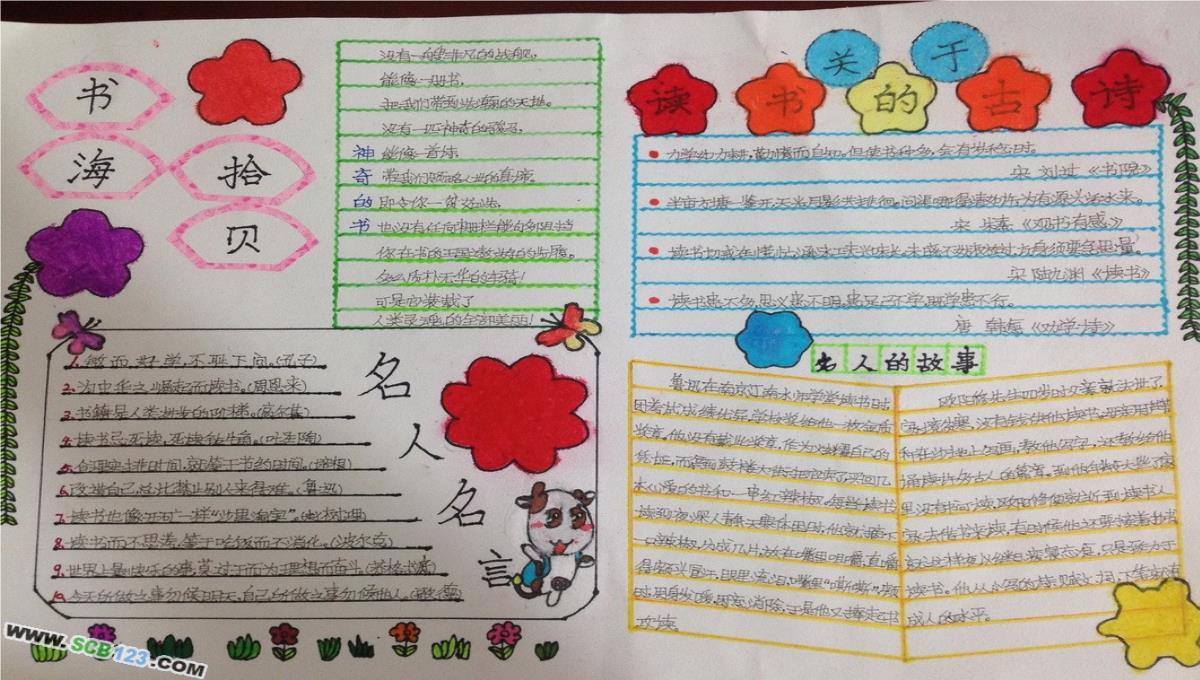 书海拾贝
神奇的书
没有一艘非凡的战舰,
能像一册书,
把我们带到浩瀚的天地。
没有一匹神奇的骏马,
能像一首诗,
带我们领略人世的真谛。
即令你一贫如洗,
也没有任何栅栏能
你在书的王国遨游的步履。
多么质朴无华的车骑!
可是它装载了
人类灵魂的全部美丽!
名人名言
1.敏而好学,不耻下问。(孔子)
2.为中华之崛起而读书。(周恩来)
3.书籍是人类进步的阶梯。(高尔基)
4.读书忌死读,死读钻牛角。(叶圣陶)
5.合理安排时间,就等于节约时间。(培根)
6.改造自己,总比禁止别人来得难。(鲁迅)
7.读书也像开矿一样“沙里淘金”。(赵树理)
8.读书而不思考,等于吃饭而不消化。(波尔克)
9.世界上最快乐的事,莫过于而为理想而奋斗。(苏格拉底)
10.今天所做之事勿候明天,自己所做之事勿候他人。(歌德)
关于
读书的古诗
力学如力耕,勤惰而自知。但使书种多,会有岁稔时。
宋 刘过《书院》
半亩方塘一鉴开,天光云影共徘徊。问渠那得清如许,为有源头活水来。
宋 朱熹《观书有感》
读书切戒在慌忙,涵泳工夫兴味长。未晓不妨权放过,切身须要急思量。
宋 陆九渊《读书》
读书患不多,思义患不明。患足已不学,既学患不行。
唐 韩愈《劝学诗》
名人的故事
鲁迅在南京江南水师学堂读书时,
因考试成绩优异,学校奖给他一枚金质
奖章。他没有戴此奖章,作为炫耀自己的
凭证,而是跑到鼓楼大街把它卖了,买回几
本心爱的书和一串红辣椒。每当读书
读到夜深人静、天寒体困时,他就摘下
一只辣椒,分成几片,放在嘴里咀嚼,直嚼
得额头冒汗,眼里流泪,嘴里“嘶嘶”,顿
时,周身发暖,困意消除,于是他又捧起书
攻读。
欧阳修先生四岁时父亲就去世了,
家境贫寒,没有钱供他读书。母亲用芦苇
秆在沙地上写画,教他写字。还教给他
诵读许多古人的篇章。到他年龄大些了,家
里没有书可读,就
家去借书来读,有时候他还要接着抄书。
就这样夜以继日、废寝忘食,只是致力于
读书。他从小写的诗赋文字,下笔就有
成人的水平。
WWW.SCB123.COM